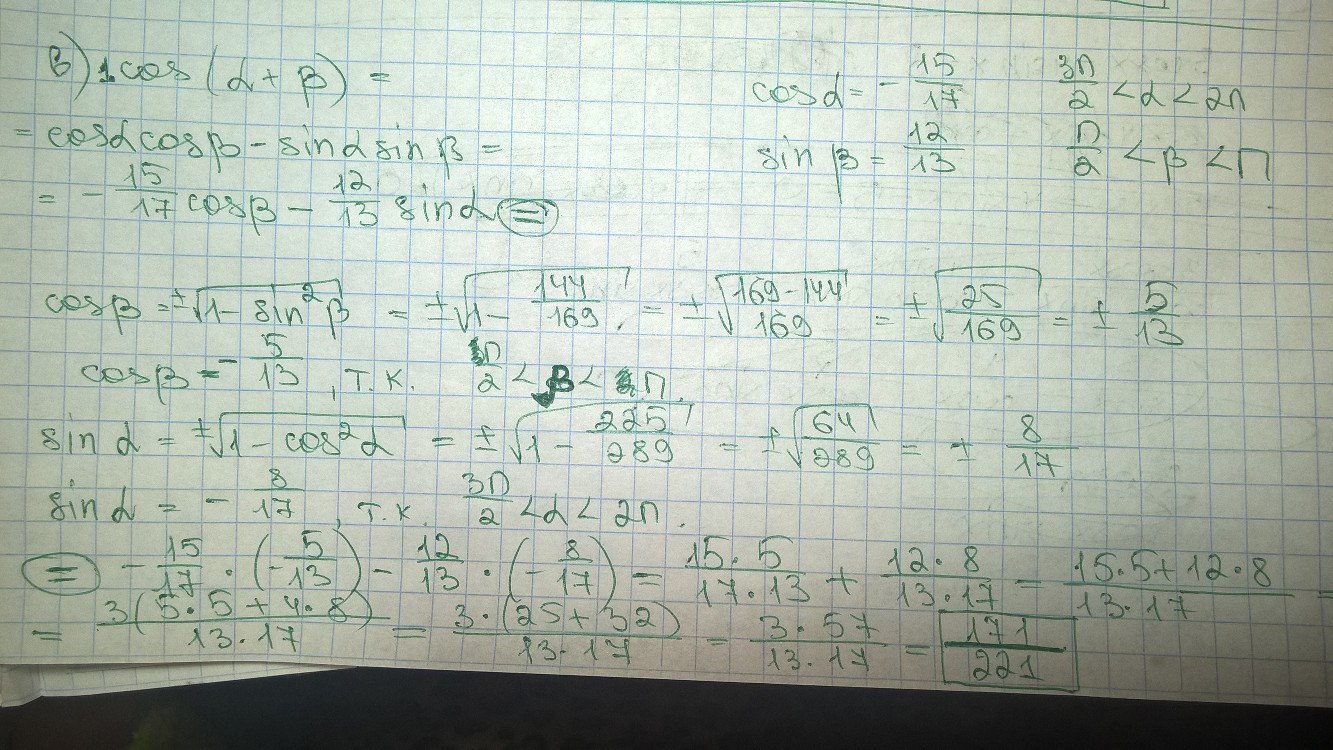 в) 1. cos (α + β) =
cosα = - 15/17 3π/2 < α < 2π
= cosα cosβ - sinα sinβ =
sin β = 12/13 π/2 < β < π
= - 15/17 cosβ - 12/13 sinα =
cosβ = ±√(1 - sin²β) = ±√(1 - 144/169) = ±√((169-144)/169) = ±√(25/169) = ± 5/13
cosβ = - 5/13, т.к. π/2 < β < π.
sin α = ±√(1 - cos²α) = ±√(1 - 225/289) = ±√(64/289) = ± 8/17
sin α = - 8/17, т.к. 3π/2 < α < 2π.
= - 15/17 · (- 5/13) - 12/13 · (- 8/17) = 15·5/17·13 + 12·8/13·17 = 15·5+12·8/13·17 =
= 3(5·5+4·8)/13·17 = 3·(25+32)/13·17 = 3·57/13·17 = 171/221